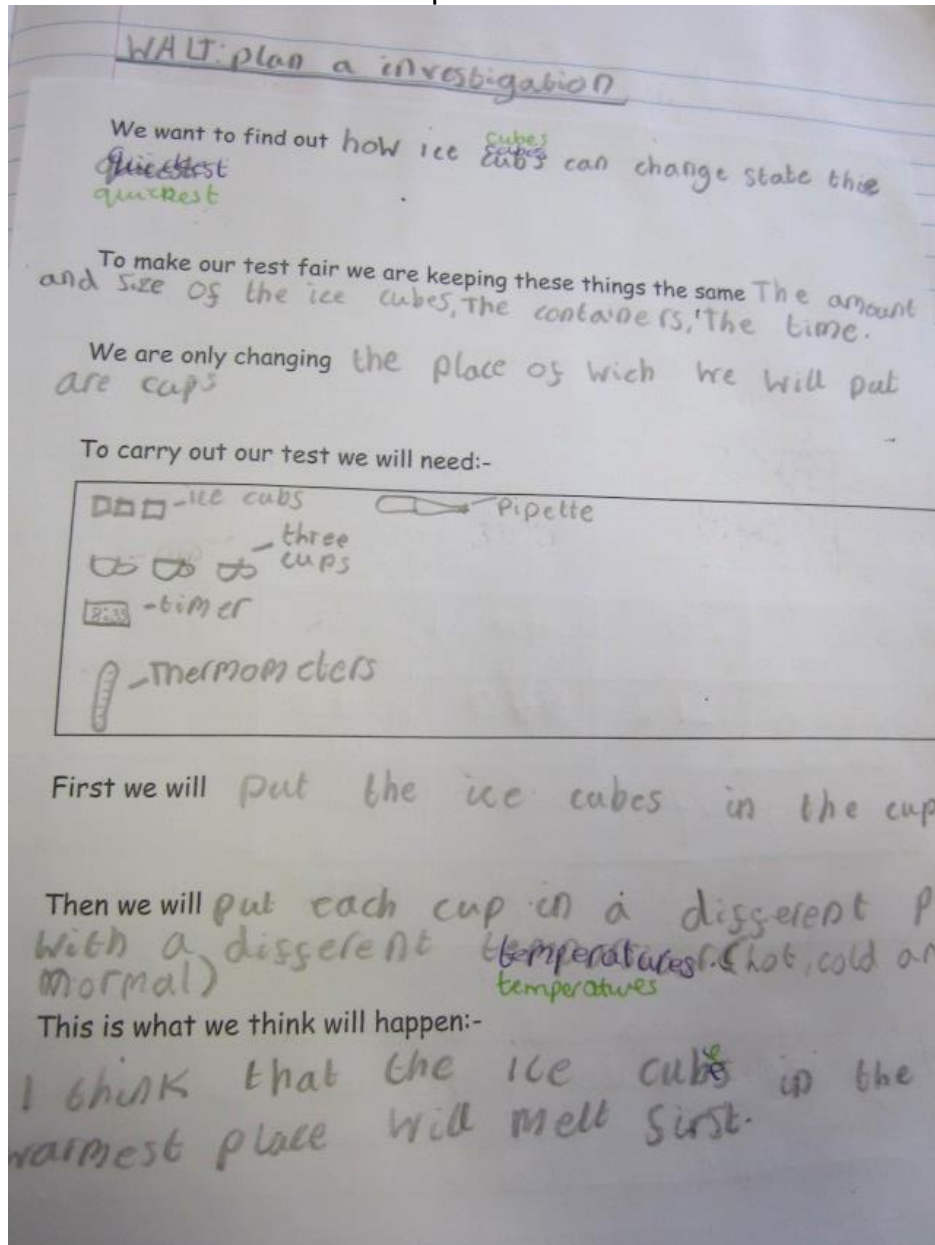 WALT: plan a investigation
We want to find out how ice cubs can change state the
cubes
quickest
To make our test fair we are keeping these things the same The amount
and size of the ice cubes, The containers, The time.
We are only changing the place of wich we will put
are cups
To carry out our test we will need:-
-ice cubs
Pipette
three
cups
8:35
-timer
Thermometers
First we will put the ice cubes in the cup
Then we will put each cup in a different P
With a different temperatures. (hot, cold an
normal)
temperatures
This is what we think will happen:-
I think that the ice cube in the
warmest place will melt first.